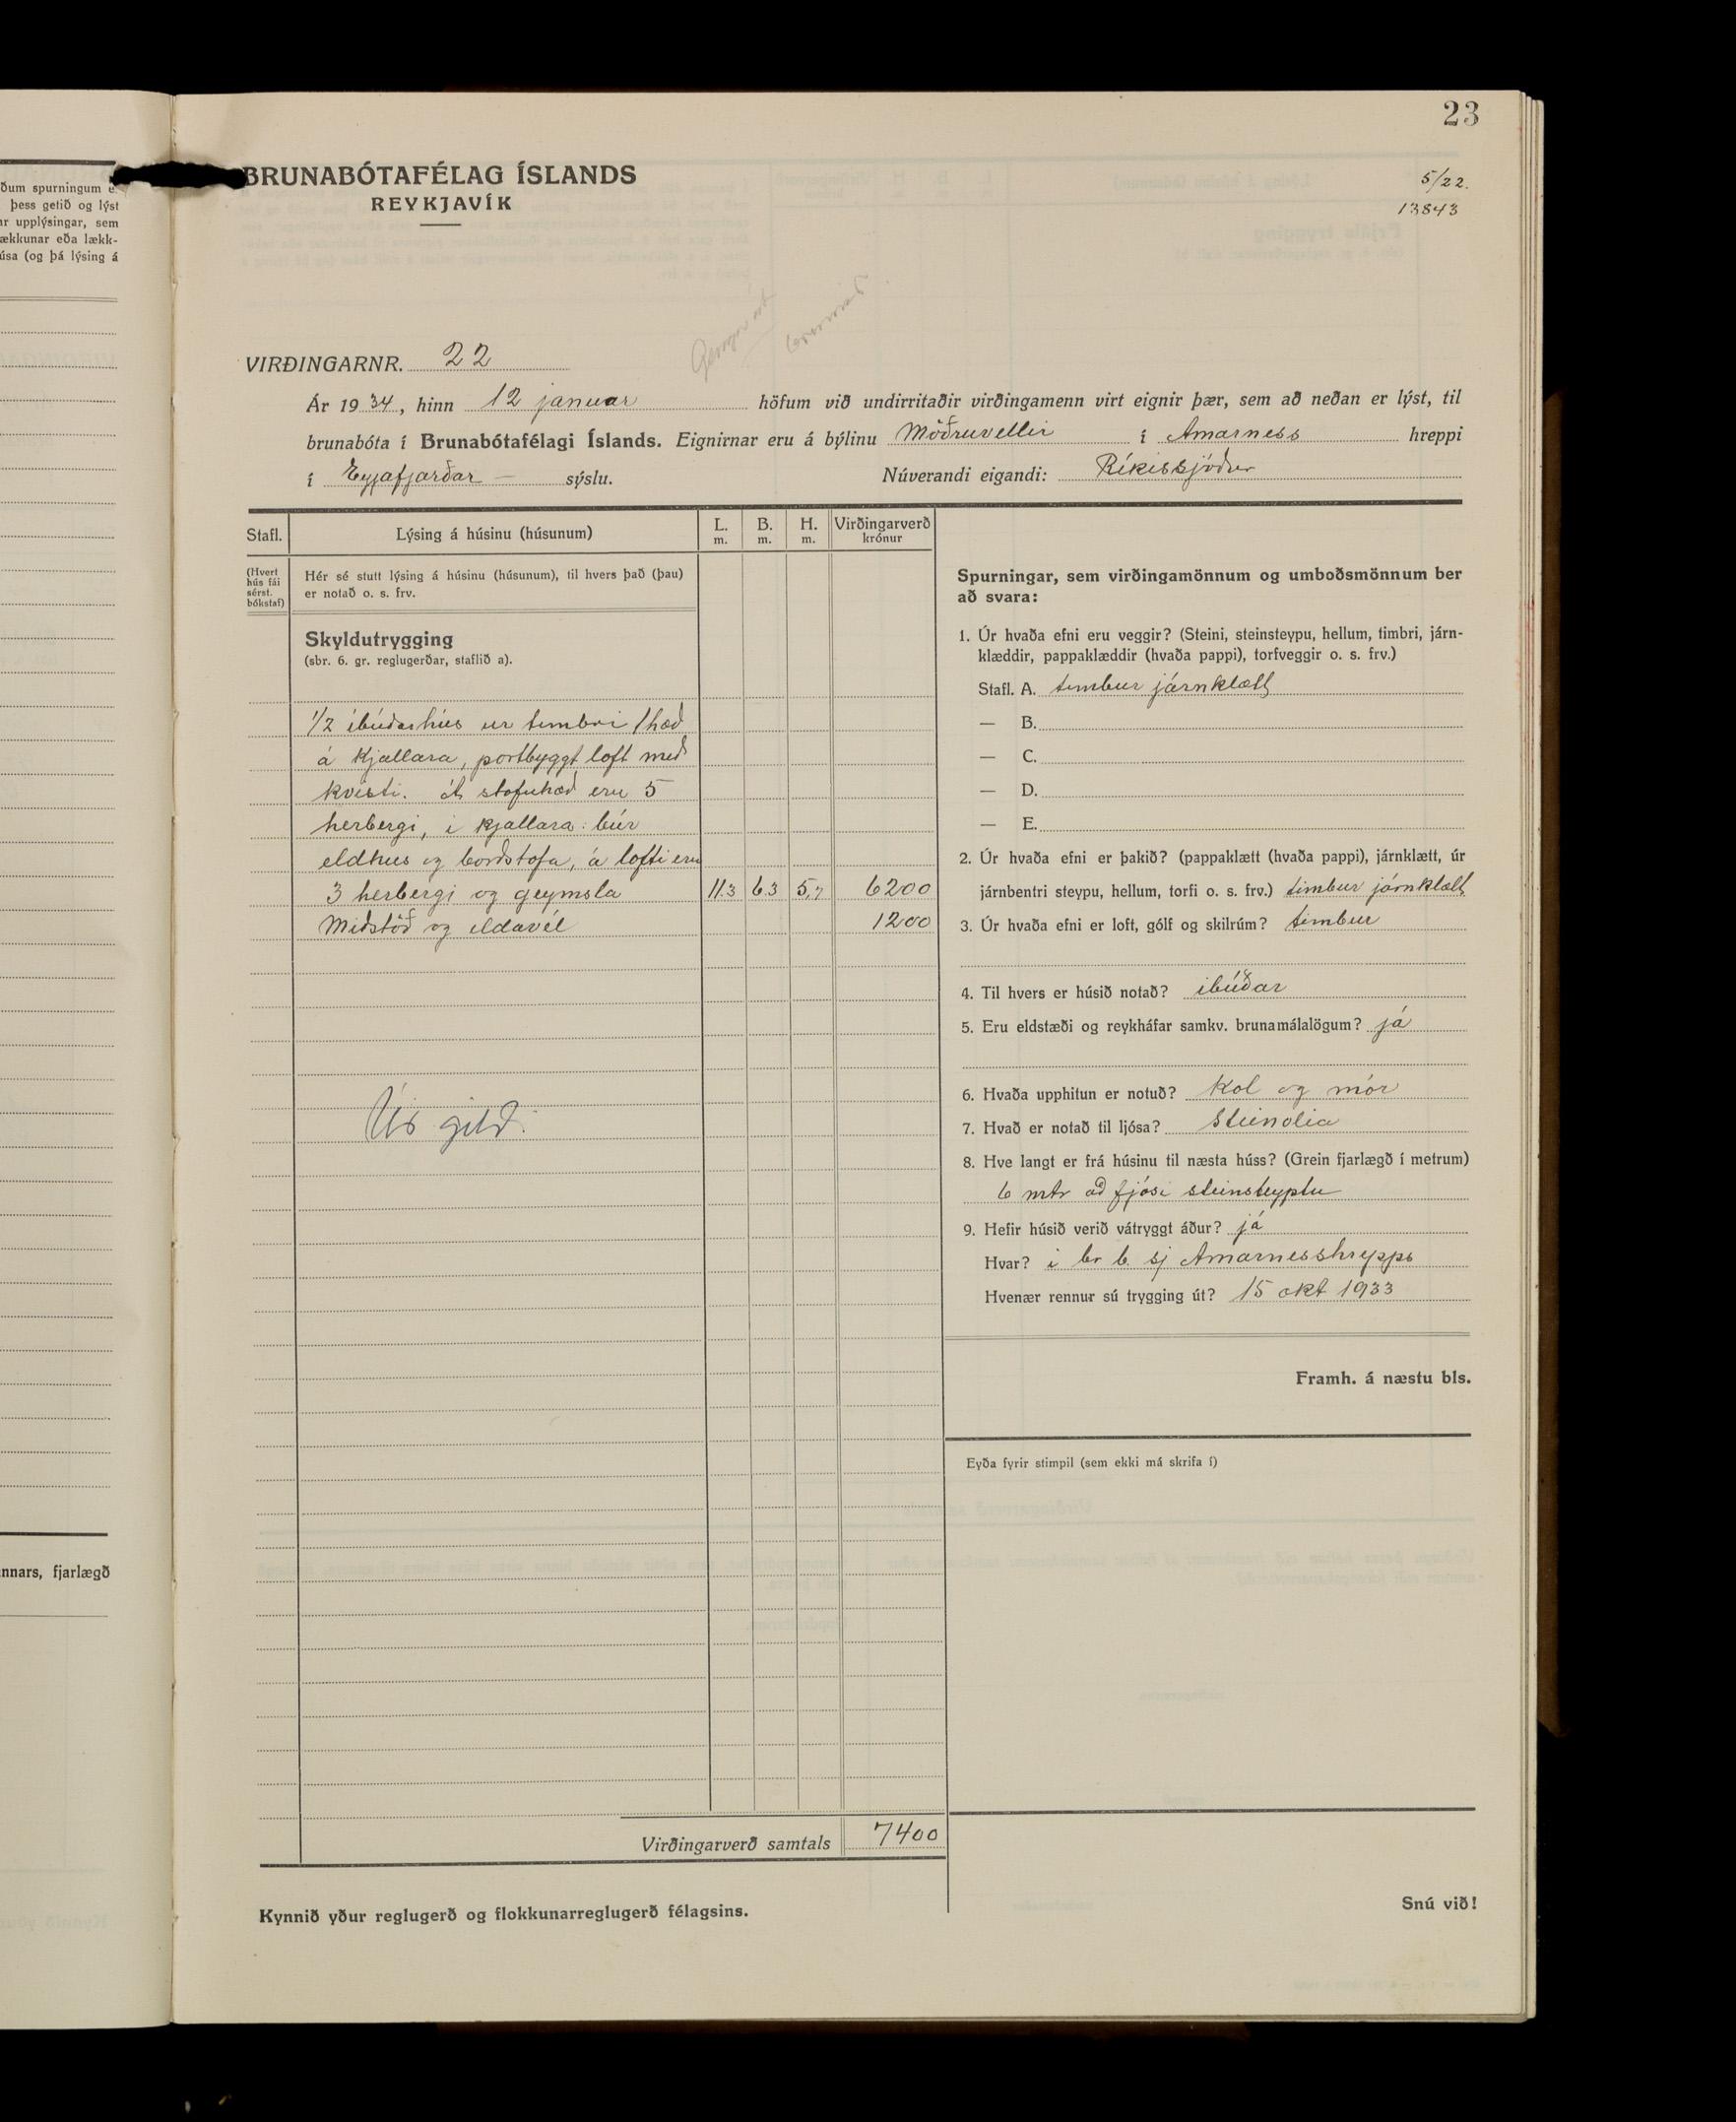 23
5/22.
13843
ðum spurningum e.
þess getið og lýst
ar upplýsingar, sem
ækkunar eða lækk-
úsa (og þá lýsing á
nnars, fjarlægð
BRUNABÓTAFÉLAG ÍSLANDS
REYKJAVÍK
VIRÐINGARNR. 22
Ár 1934, hinn 12 januar höfum við undirritaðir virðingamenn virt eignir þær, sem að neðan er lýst, til
brunabóta í Brunabótafélagi Íslands. Eignirnar eru á býlinu Möðruvellir í Arnarness hreppi
í Eyjafjarðar — sýslu. Núverandi eigandi: Ríkissjóður
Stafl. Lýsing á húsinu (húsunum) L. m. B. m. H. m. Virðingarverð krónur
(Hvert hús fái sérst. bókstaf)
Hér sé stutt lýsing á húsinu (húsunum), til hvers það (þau)
er notað o. s. frv.
Skyldutrygging
(sbr. 6. gr. reglugerðar, staflið a).
1/2 íbúðarhús úr timbri 1 hæð
á kjallara, portbyggt loft með
kvisti. Á stofuhæð eru 5
herbergi, í kjallara: búr
eldhus og borðstofa, á lofti eru
3 herbergi og geymsla 11.3 6.3 5,7 6200
Miðstöð og eldavél 1200
Úr gildi
Virðingarverð samtals 7400
Kynnið yður reglugerð og flokkunarreglugerð félagsins.
Spurningar, sem virðingamönnum og umboðsmönnum ber
að svara:
1. Úr hvaða efni eru veggir? (Steini, steinsteypu, hellum, timbri, járn-
klæddir, pappaklæddir (hvaða pappi), torfveggir o. s. frv.)
Stafl. A. timbur járnklætt
— B.
— C.
— D.
— E.
2. Úr hvaða efni er þakið? (pappaklætt (hvaða pappi), járnklætt, úr
járnbentri steypu, hellum, torfi o. s. frv.) timbur járnklætt
3. Úr hvaða efni er loft, gólf og skilrúm? timbur
4. Til hvers er húsið notað? íbúðar
5. Eru eldstæði og reykháfar samkv. brunamálalögum? já
6. Hvaða upphitun er notuð? Kol og mór
7. Hvað er notað til ljósa? Steinolia
8. Hve langt er frá húsinu til næsta húss? (Grein fjarlægð í metrum)
6 mtr að fjósi steinsteyptu
9. Hefir húsið verið vátryggt áður? já
Hvar? í br b. sj Arnarnesshrepps
Hvenær rennur sú trygging út? 15 okt 1933
Framh. á næstu bls.
Eyða fyrir stimpil (sem ekki má skrifa í)
Snú við!